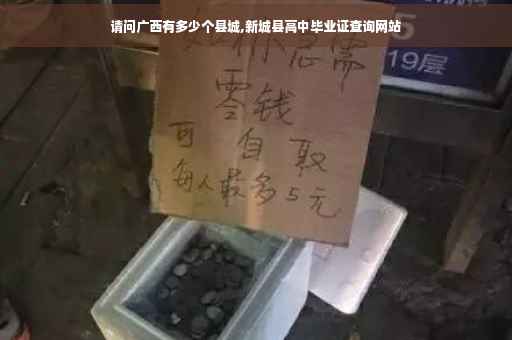 请问广西有多少个县城,新城县高中毕业证查询网站
如你急需
零钱
可自取
每人最多5元
5
19层